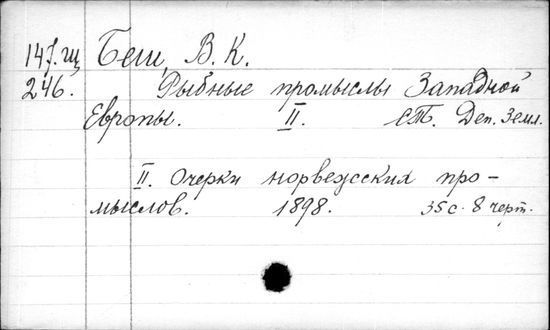 147.щ Беш, В. К.
246. Рыбные промыслы Западной
Европы. II. Деп. Земл.
II. Очерки норвежских про-
мыслов. 1898. 35 с. 8 черт.